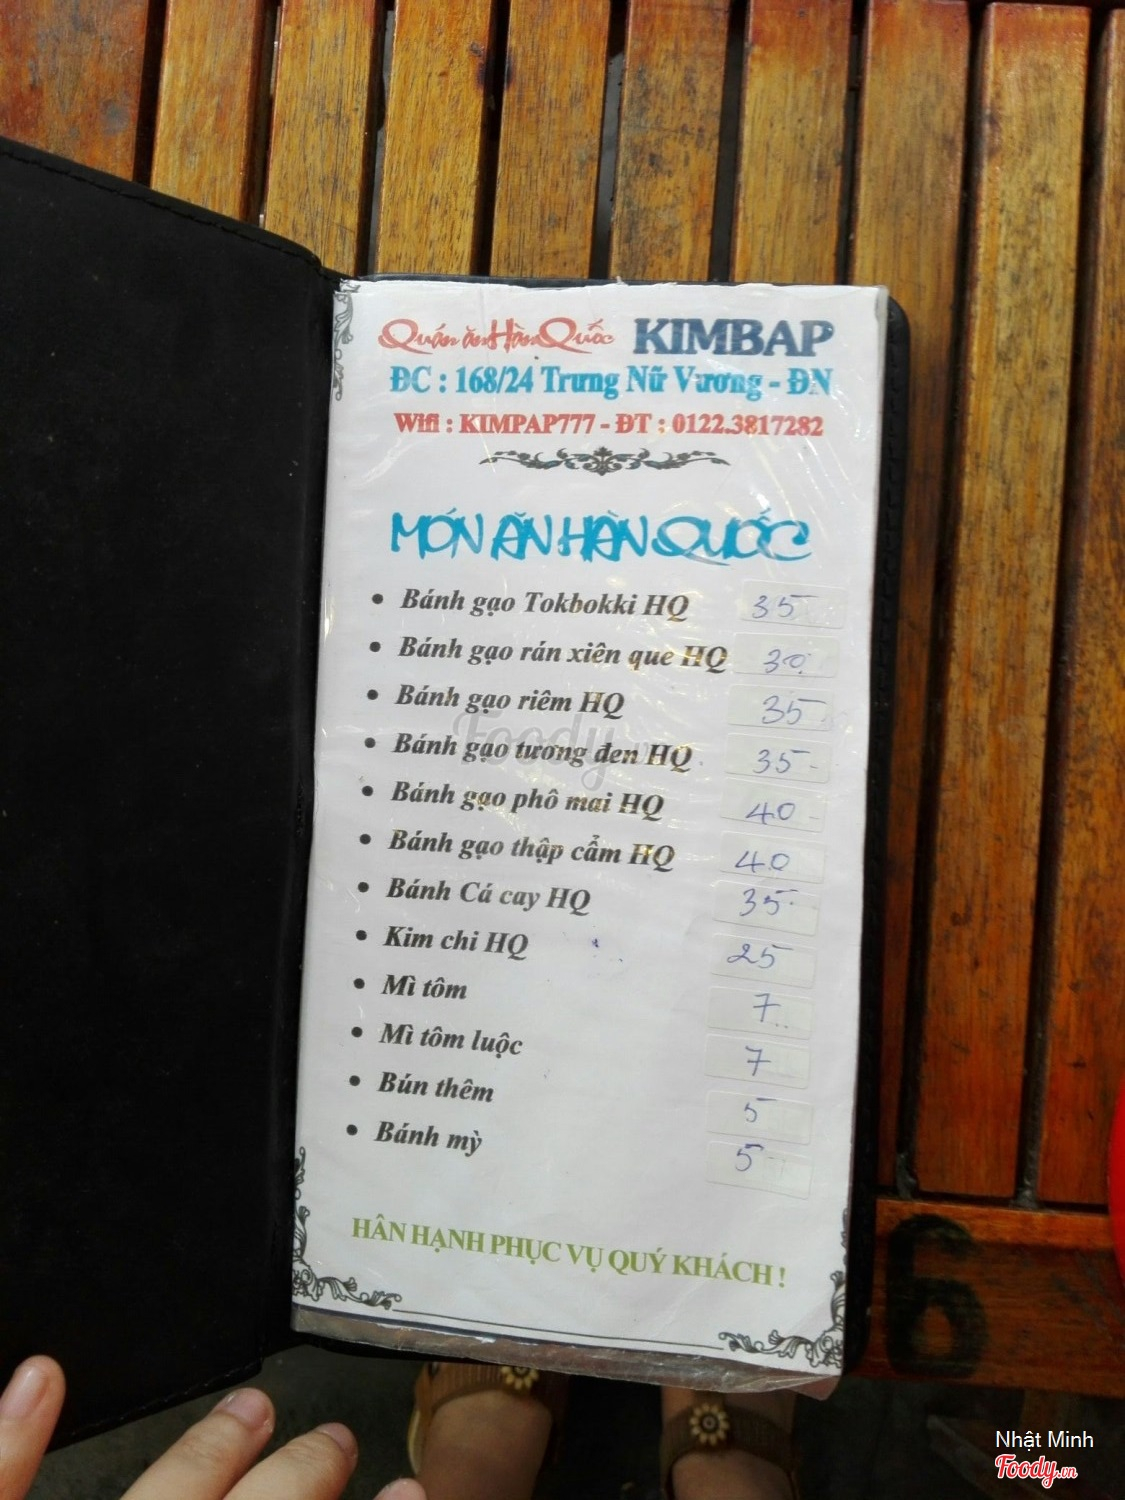 Quán ăn Hàn Quốc KIMBAP
ĐC : 168/24 Trưng Nữ Vương - ĐN
Wifi : KIMPAP777 - ĐT : 0122.3817282
MÓN ĂN HÀN QUỐC
• Bánh gạo Tokbokki HQ 35
• Bánh gạo rán xiên que HQ 30
• Bánh gạo riêm HQ 35
• Bánh gạo tương đen HQ 35
• Bánh gạo phô mai HQ 40
• Bánh gạo thập cẩm HQ 40
• Bánh Cá cay HQ 35
• Kim chi HQ 25
• Mì tôm 7
• Mì tôm luộc 7
• Bún thêm 5
• Bánh mỳ 5
HÂN HẠNH PHỤC VỤ QUÝ KHÁCH !
6
Foody.vn
Nhật Minh
Foody.vn